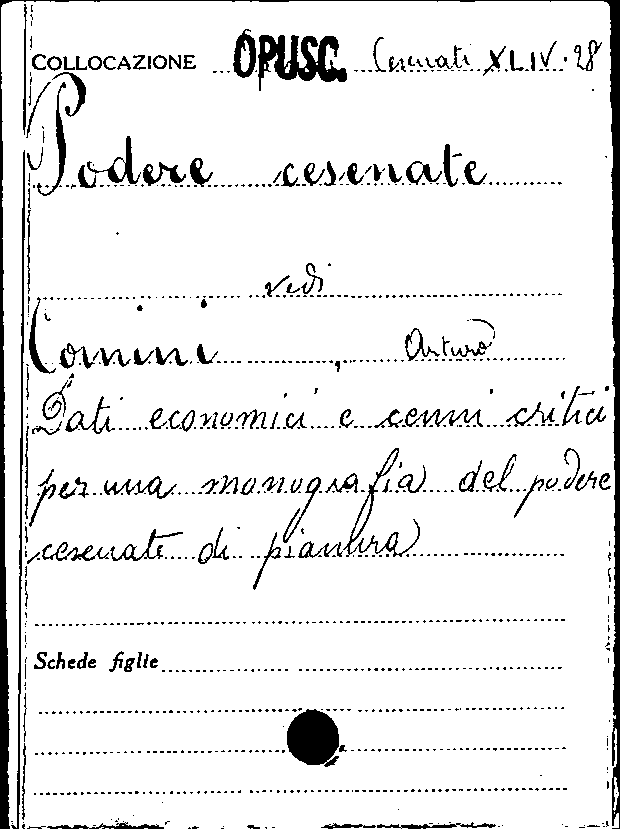 COLLOCAZIONE OPUSC. Cesenati XLIV.28
Podere cesenate
vedi
Comini, Arturo
Dati economici e cenni critici
per una monografia del podere
cesenate di pianura
Schede figlie